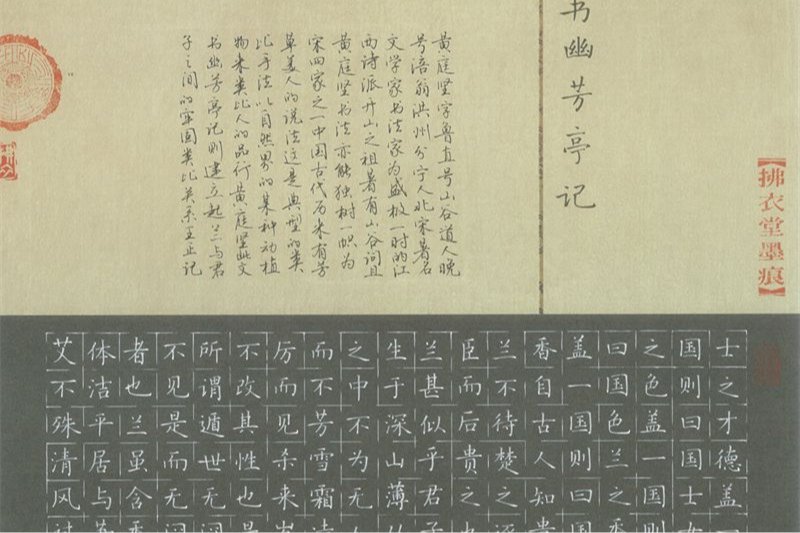 【拂衣堂墨痕】
书幽芳亭记
黄庭坚字鲁直号山谷道人晚
号涪翁洪州分宁人北宋著名
文学家书法家为盛极一时的江
西诗派开山之祖著有山谷词且
黄庭坚书法亦能独树一帜为
宋四家之一中国古代历来有芳
草美人的说法这是典型的类
比手法以自然界的某种动植
物来类比人的品行黄庭坚此文
书幽芳亭记则建立起兰与君
子之间的牢固类比关系王正记
士之才德盖一
国则曰国士女
之色盖一国则
曰国色兰之香
盖一国则曰国
香自古人知贵
兰不待楚之逐
臣而后贵之也
兰甚似乎君子
生于深山薄丛
之中不为无人
而不芳雪霜凌
厉而见杀来岁
不改其性也是
所谓遁世无闷
不见是而无闷
者也兰虽含香
体洁平居与萧
艾不殊清风过